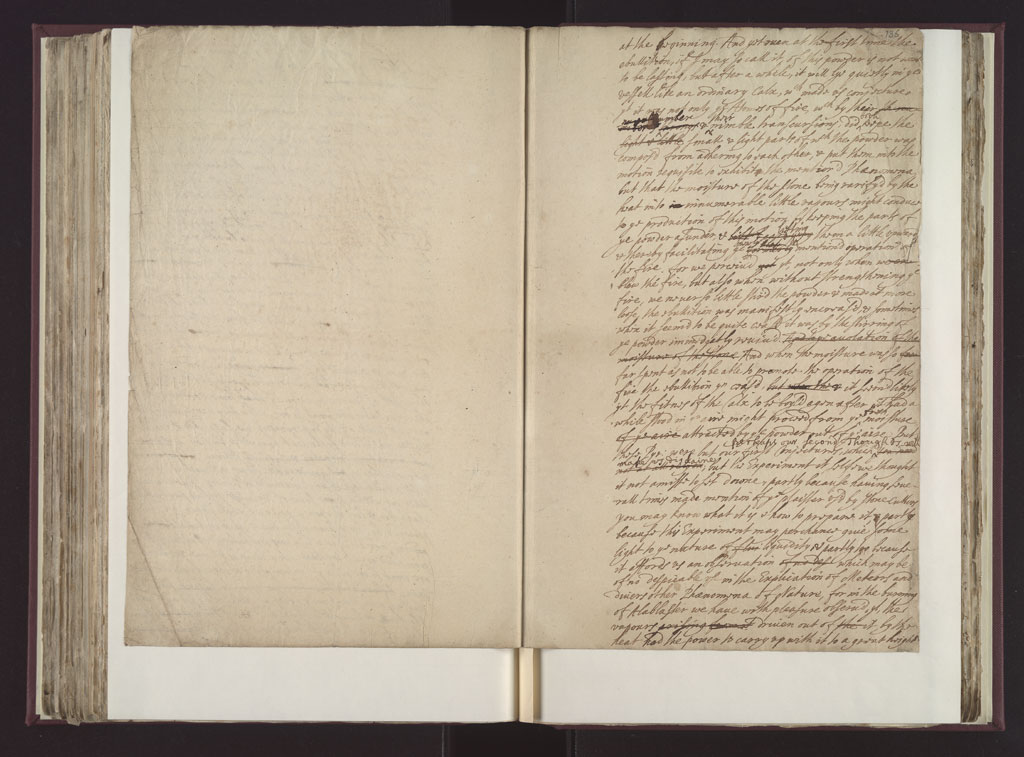 186
at the beginning. And yet even at the first time the
ebullition, if I may so call it, of this powder is not wont
to be lasting, but after a while, it will lye quietly in ye
vessell like an ordinary Calx, wch made us conjecture
yt it was not only ye Atomes of fire, wch by their
number & their nimble transcursions did keep the
light & little small & light parts of wch the powder was
compos'd from adhering to each other, & put them into the
motion requisite to exhibite the mention'd Phænomena,
but that the moisture of the stone being rarify'd by the
heat into in innumerable little vapours might conduce
to ye production of this motion by keeping the parts of
ye powder asunder & lifting them a little upward
& thereby facilitating ye mention'd operation of
the fire. for we perceiv'd yt yt not only when we
blew the fire, but also when without strengthening ye
fire, we never so little stirr'd the powder & made it more
loose, the ebullition was manifestly increas'd & sometimes
when it seem'd to be quite ceas'd it was by the stirring of
ye powder immediatly reviv'd. avolation of the
moisture of the stone And when the moisture was so
far spent as not to be able to promote the operation of the
fire the ebullition ye ceas'd. but when the & it seem'd likely
yt the fitnes of the calx to be boyl'd agen after it had a
while stood in ye aire might proceed from ye fresh moisture
of ye aire attracted by ye powder out of ye aire. But
these were but our first conjectures which perhaps our second Thoughts will
make us disclaime, but ye Experiment it selfe we thought
it not amisse to set downe, partly because having seve-
rall times made mention of ye plaister us'd by stone cutters
you may know what it is & how to prepare it, & partly
because this Experiment may perchance give some
light to ye nature of fluidity & partly too because
it affords us an observation of no desp which may be
of no despicable use in the Explication of Meteors and
divers other Phænomena of Nature, for in the burning
of Alablaster we have with pleasure observ'd, yt, the
vapours arising driven out of the it by the
heat had the power to carry up with it to a great height